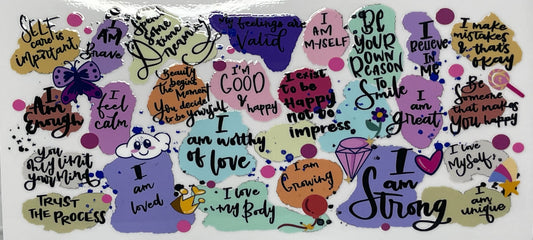 SELF
care is
important
I
AM
Brave
Spend
some
time
Dreaming
My feelings are
Valid
I
AM
MYSELF
BE
YOUR
OWN
REASON
To
Smile
I
BELIEVE
IN
ME
I make
mistakes
& that's
okay
I
Am
Enough
I
feel
calm
Beauty
begins
the Moment
You decide
to be yourself
I'm
GOOD
&
happy
I exist
to be
Happy
not to
impress
I
am
great
Be
Someone
that makes
you happy
you
only limit
your mind
TRUST
THE PROCESS
I
am
loved
I
am worthy
of love
I love
my Body
I am
Growing
I
am
Strong
I love
Myself
I
am
unique